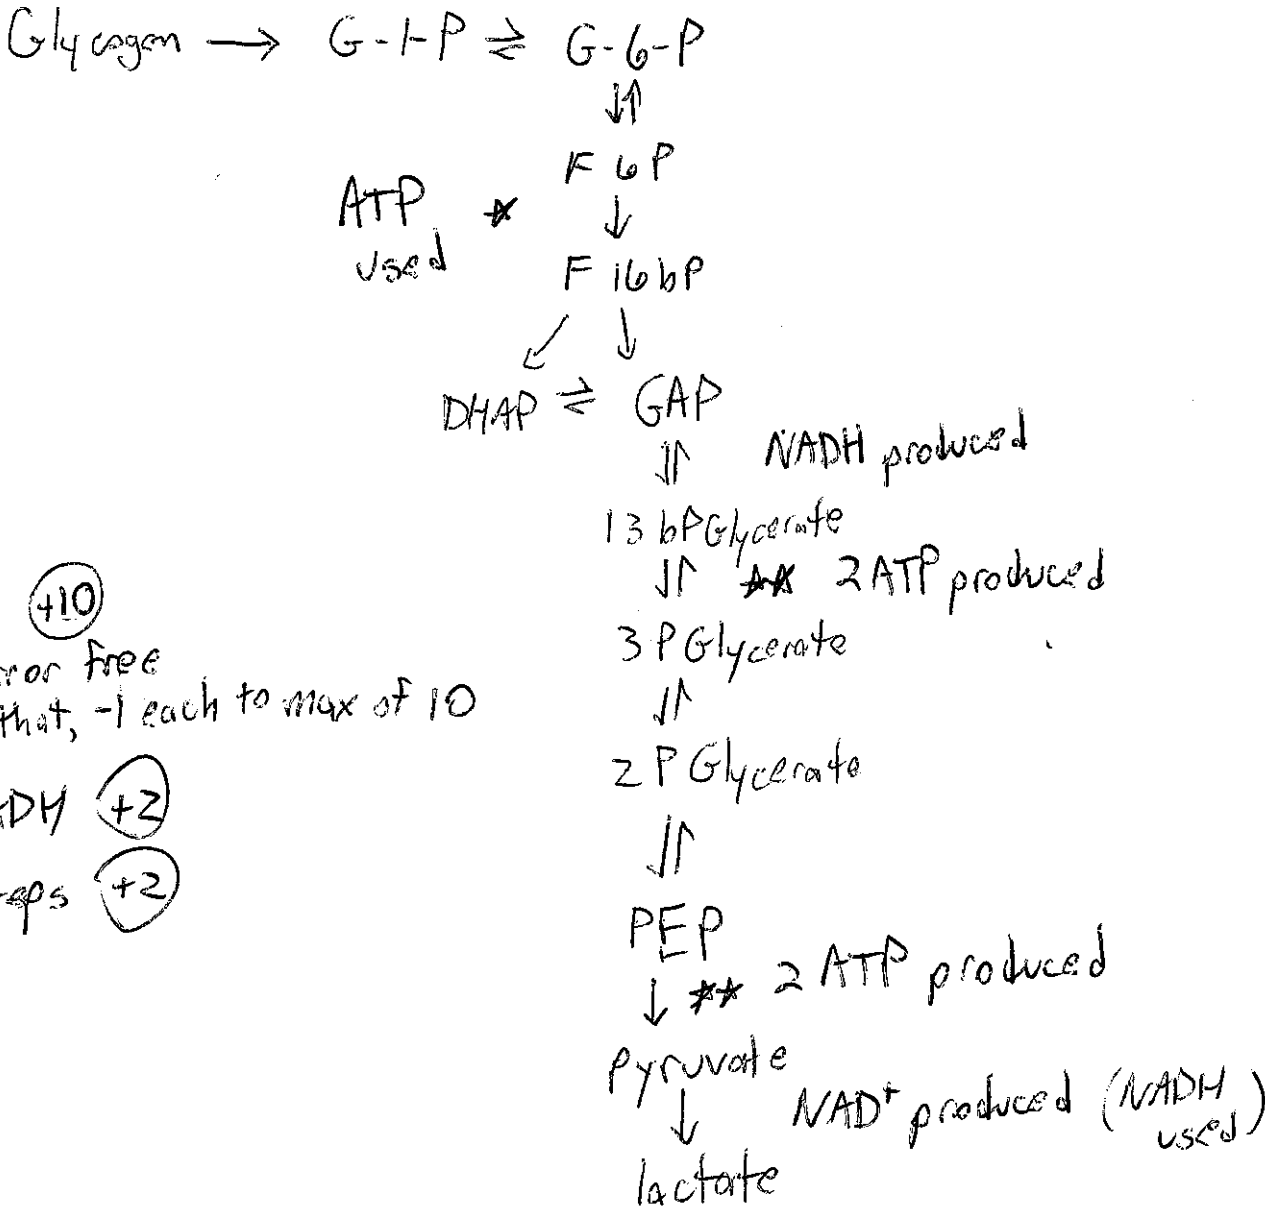 Glycogen → G-1-P ⇌ G-6-P
F 6P
ATP used
F 16 bP
DHAP ⇌ GAP
NADH produced
13 bPGlycerate
** 2 ATP produced
3 P Glycerate
2 P Glycerate
PEP
** 2 ATP produced
pyruvate
NAD+ produced (NADH used)
lactate
+10
free
that, -1 each to max of 10
+2
+2